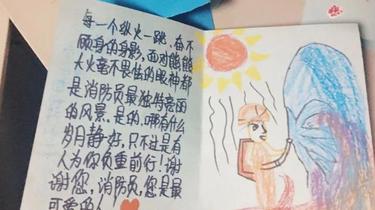 每一个纵火一跳，奋不
顾身的身影，面对熊熊
大火毫不畏怯的眼神都
是消防员最独特亮丽
的风景，是的，哪有什么
岁月静好，只不过是有
人为你负重前行！谢
谢您，消防员，您是最
可爱的人！